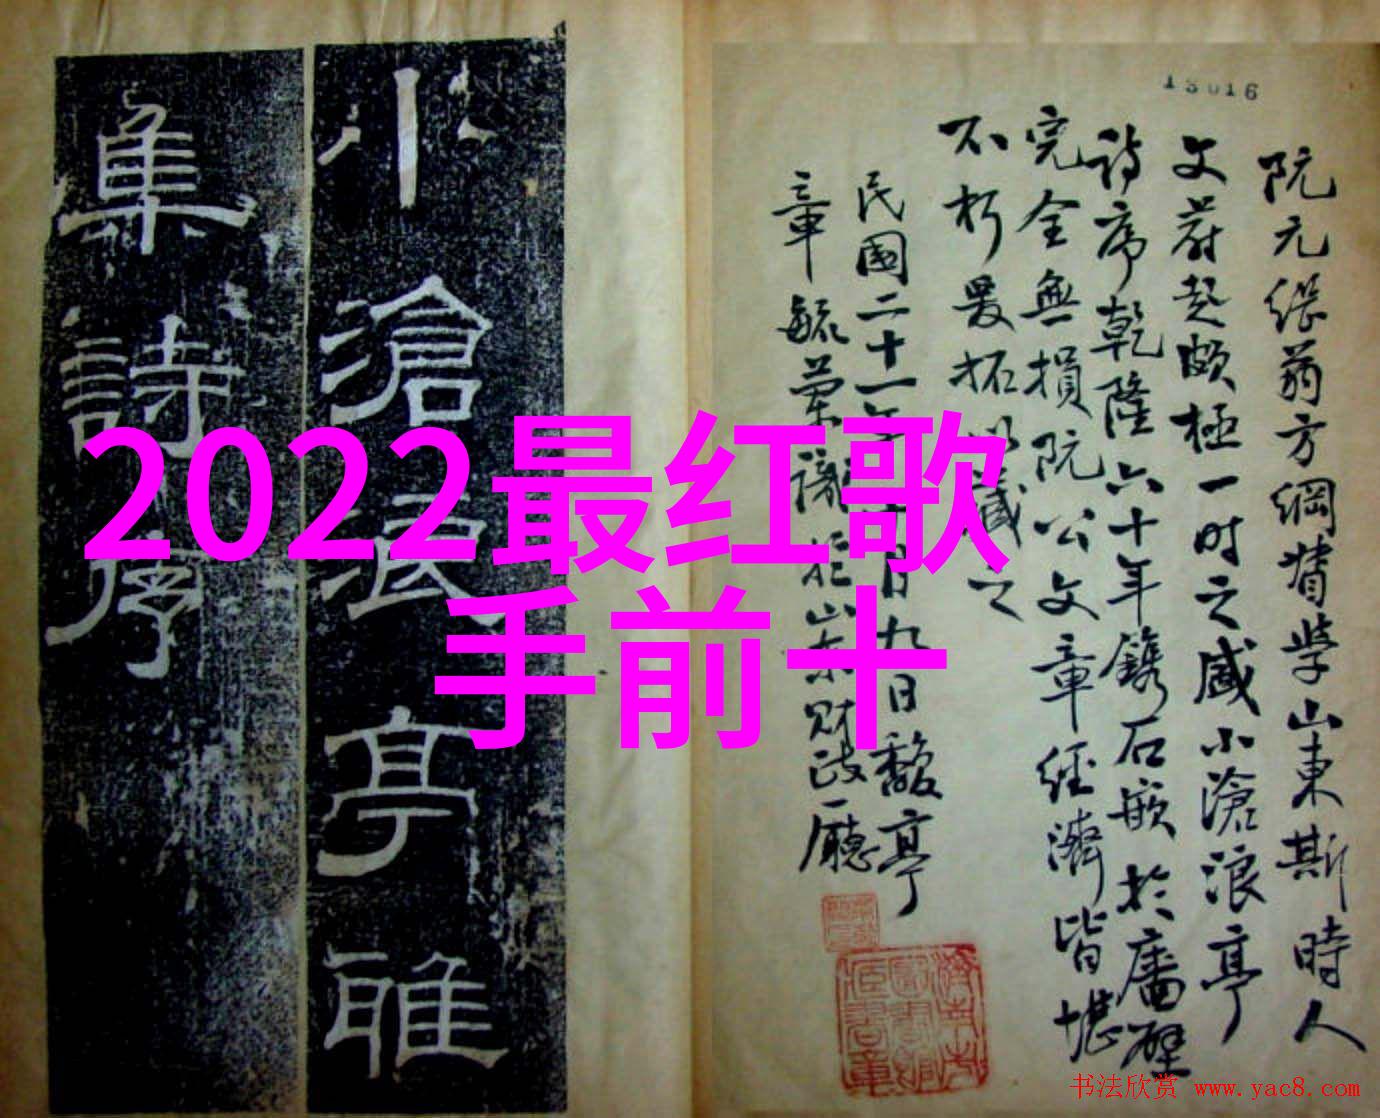 小滄浪亭雅
集詩序
13016
阮元繼翁方綱督学山東斯時人
文蔚起頗極一时之盛小滄浪亭
詩序乾隆六十年鐫石嵌於廧壁
完全無損阮公文章經濟皆堪
不朽爰拓以藏之
民國二十一年 月九日馥亭
章毓 識於山东财政廳
2022最红歌
手前十
书法欣赏 www.yac8.com